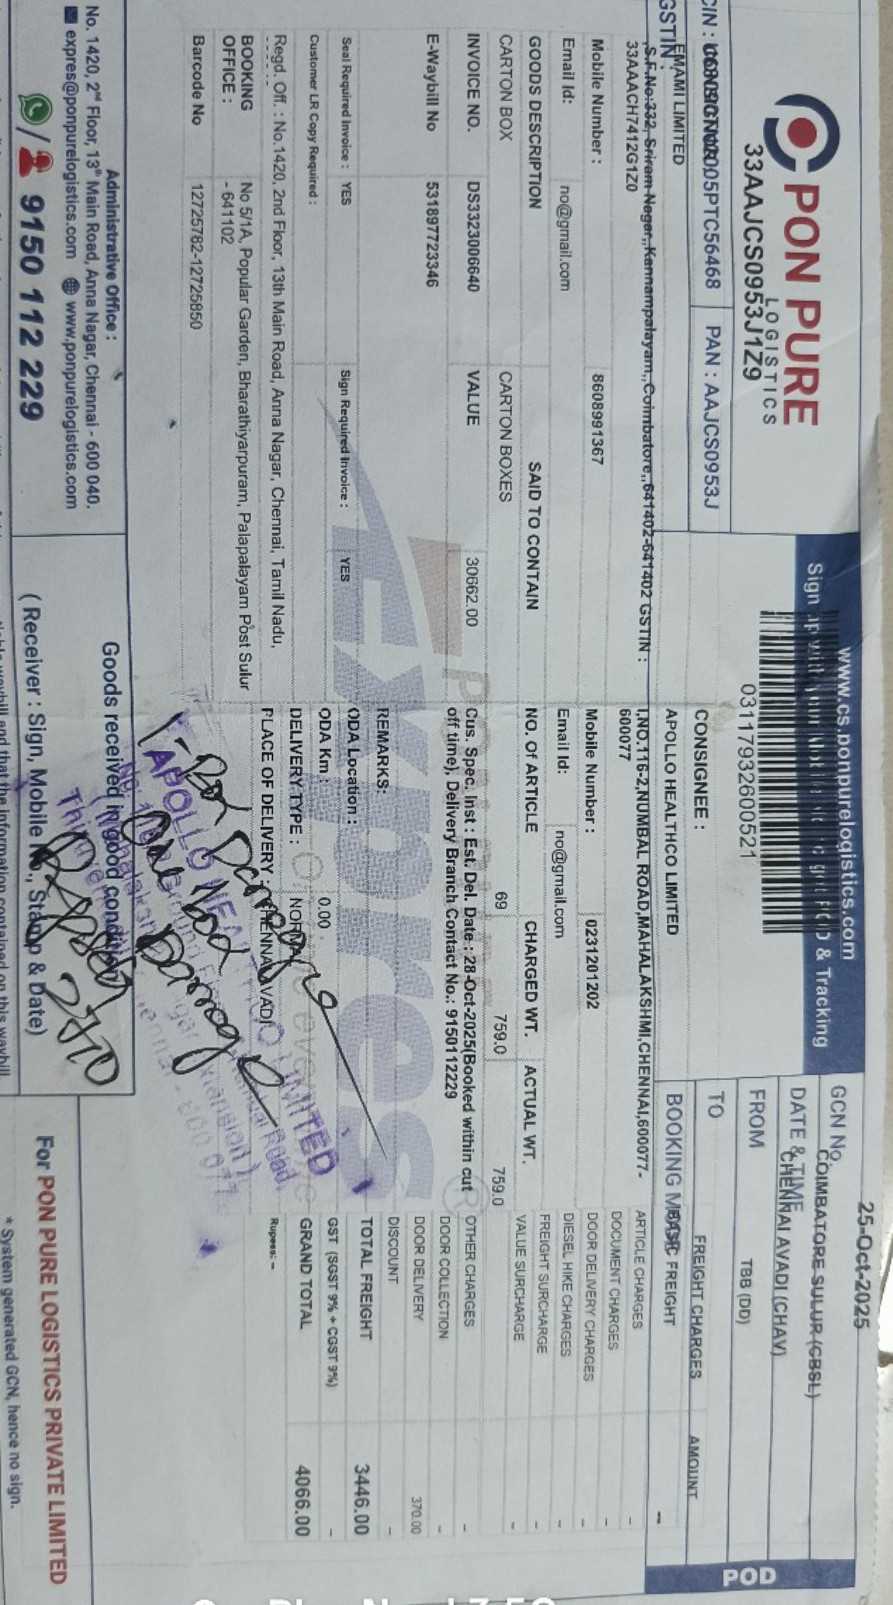 PON PURE
LOGISTICS
33AAJCS0953J1Z9
PAN : AAJCS0953J
GSTIN :
EMAMI LIMITED
S.F.No:332, Sriram Nagar,,Kannampalayam,,Coimbatore,,641402-641402 GSTIN :
33AAACH7412G1Z0
Mobile Number : 8608991367
Email Id: no@gmail.com
GOODS DESCRIPTION SAID TO CONTAIN
CARTON BOX CARTON BOXES
INVOICE NO. DS3323006640 VALUE 30662.00
E-Waybill No 531897723346
Seal Required Invoice : YES Sign Required Invoice : YES
Customer LR Copy Required :
Regd. Off. : No.1420, 2nd Floor, 13th Main Road, Anna Nagar, Chennai, Tamil Nadu,
BOOKING OFFICE : No 5/1A, Popular Garden, Bharathiyarpuram, Palapalayam Post Sulur
- 641102
Barcode No 12725782-12725850
Administrative Office :
No. 1420, 2nd Floor, 13th Main Road, Anna Nagar, Chennai - 600 040.
expres@ponpurelogistics.com www.ponpurelogistics.com
9150 112 229
www.cs.ponpurelogistics.com
Sign & Tracking
03117932600521
CONSIGNEE :
APOLLO HEALTHCO LIMITED
I,NO.116-2,NUMBAL ROAD,MAHALAKSHMI,CHENNAI,600077-
600077
Mobile Number : 0231201202
Email Id: no@gmail.com
NO. Of ARTICLE CHARGED WT. ACTUAL WT.
69 759.0 759.0
Cus. Spec. Inst : Est. Del. Date : 28-Oct-2025(Booked within cut
off time), Delivery Branch Contact No.: 9150112229
REMARKS:
ODA Location :
ODA Km : 0.00
DELIVERY TYPE : NORMAL
PLACE OF DELIVERY : CHENNAI AVADI
Expres
APOLLO HEALTHCO LIMITED
Goods received in good condition
( Receiver : Sign, Mobile No., Stamp & Date)
25-Oct-2025
GCN No.
COIMBATORE SULUR (CBSL)
DATE & TIME
CHENNAI AVADI (CHAV)
FROM TBB (DD)
TO
FREIGHT CHARGES AMOUNT
BASIC FREIGHT --
ARTICLE CHARGES -
DOCUMENT CHARGES -
DOOR DELIVERY CHARGES -
DIESEL HIKE CHARGES -
FREIGHT SURCHARGE -
VALUE SURCHARGE -
OTHER CHARGES -
DOOR COLLECTION -
DOOR DELIVERY 370.00
DISCOUNT -
TOTAL FREIGHT 3446.00
GST (SGST 9% + CGST 9%) -
GRAND TOTAL 4066.00
Rupees: --
For PON PURE LOGISTICS PRIVATE LIMITED
* System generated GCN, hence no sign.
POD